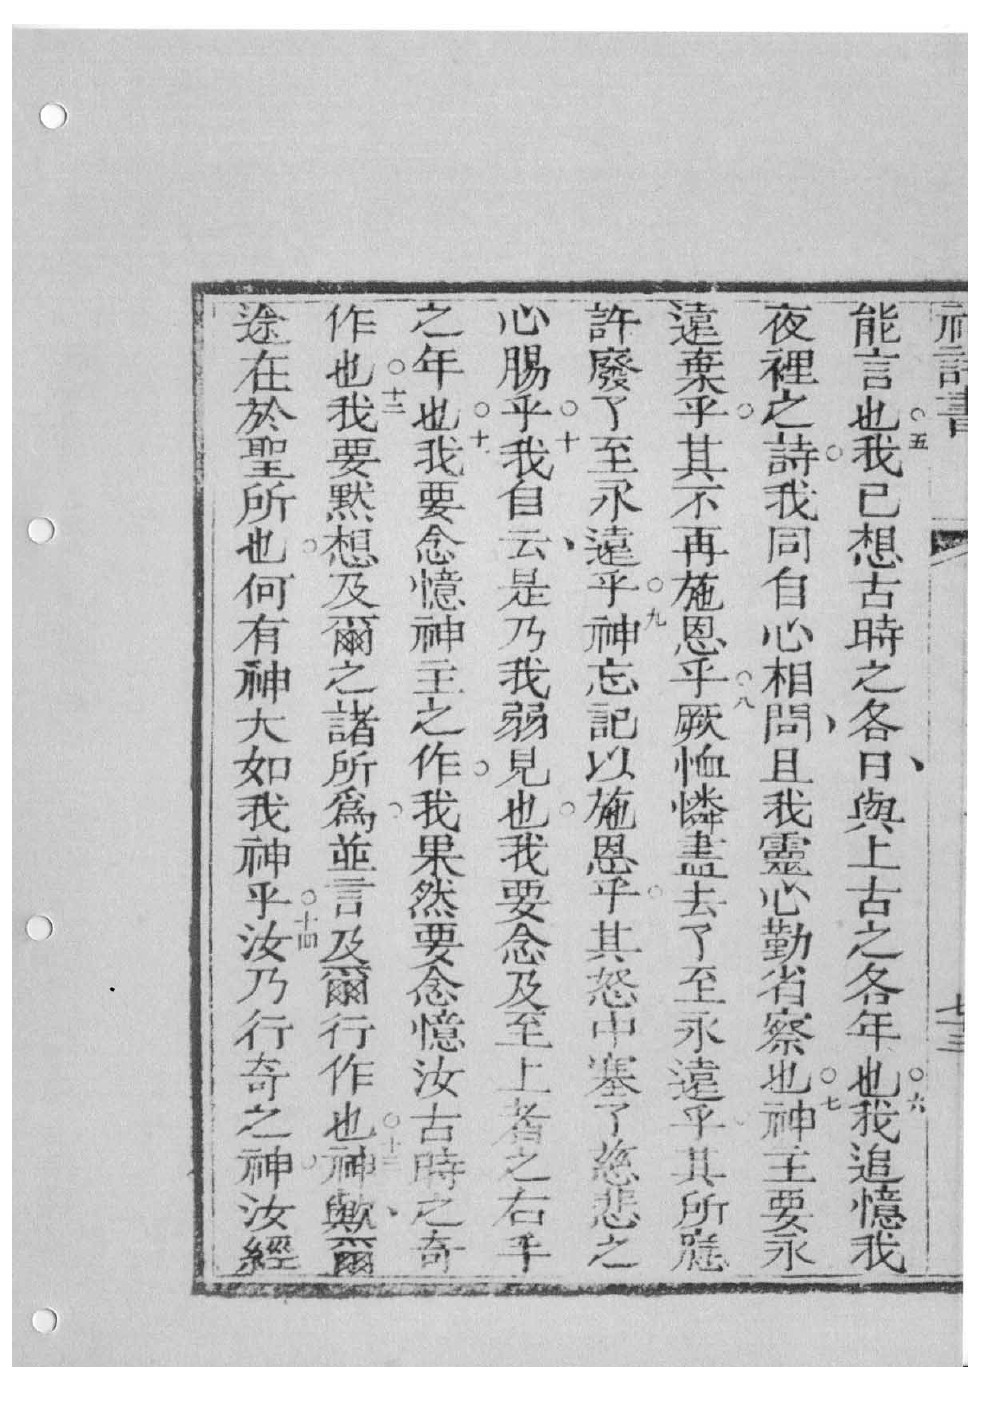 神詩書
七三
能言也○五我已想古時之各日、與上古之各年也○六我追憶我
夜裡之詩○我同自心相問、且我靈心勤省察也○七神主要永
遠棄乎○其不再施恩乎○八厥恤憐盡去了至永遠乎○其所
許廢了至永遠乎○九神忘記以施恩乎○其怒中塞了慈悲之
心賜乎○十我自云、是乃我弱見也○我要念及至上者之右手
之年也○十我要念憶神主之作○我果然要念憶汝古時之奇
作也○十二我要默想及爾之諸所為○並言及爾行作也○十三神歟、爾
途在於聖所也○何有神大如我神乎○十四汝乃行奇之神○汝經